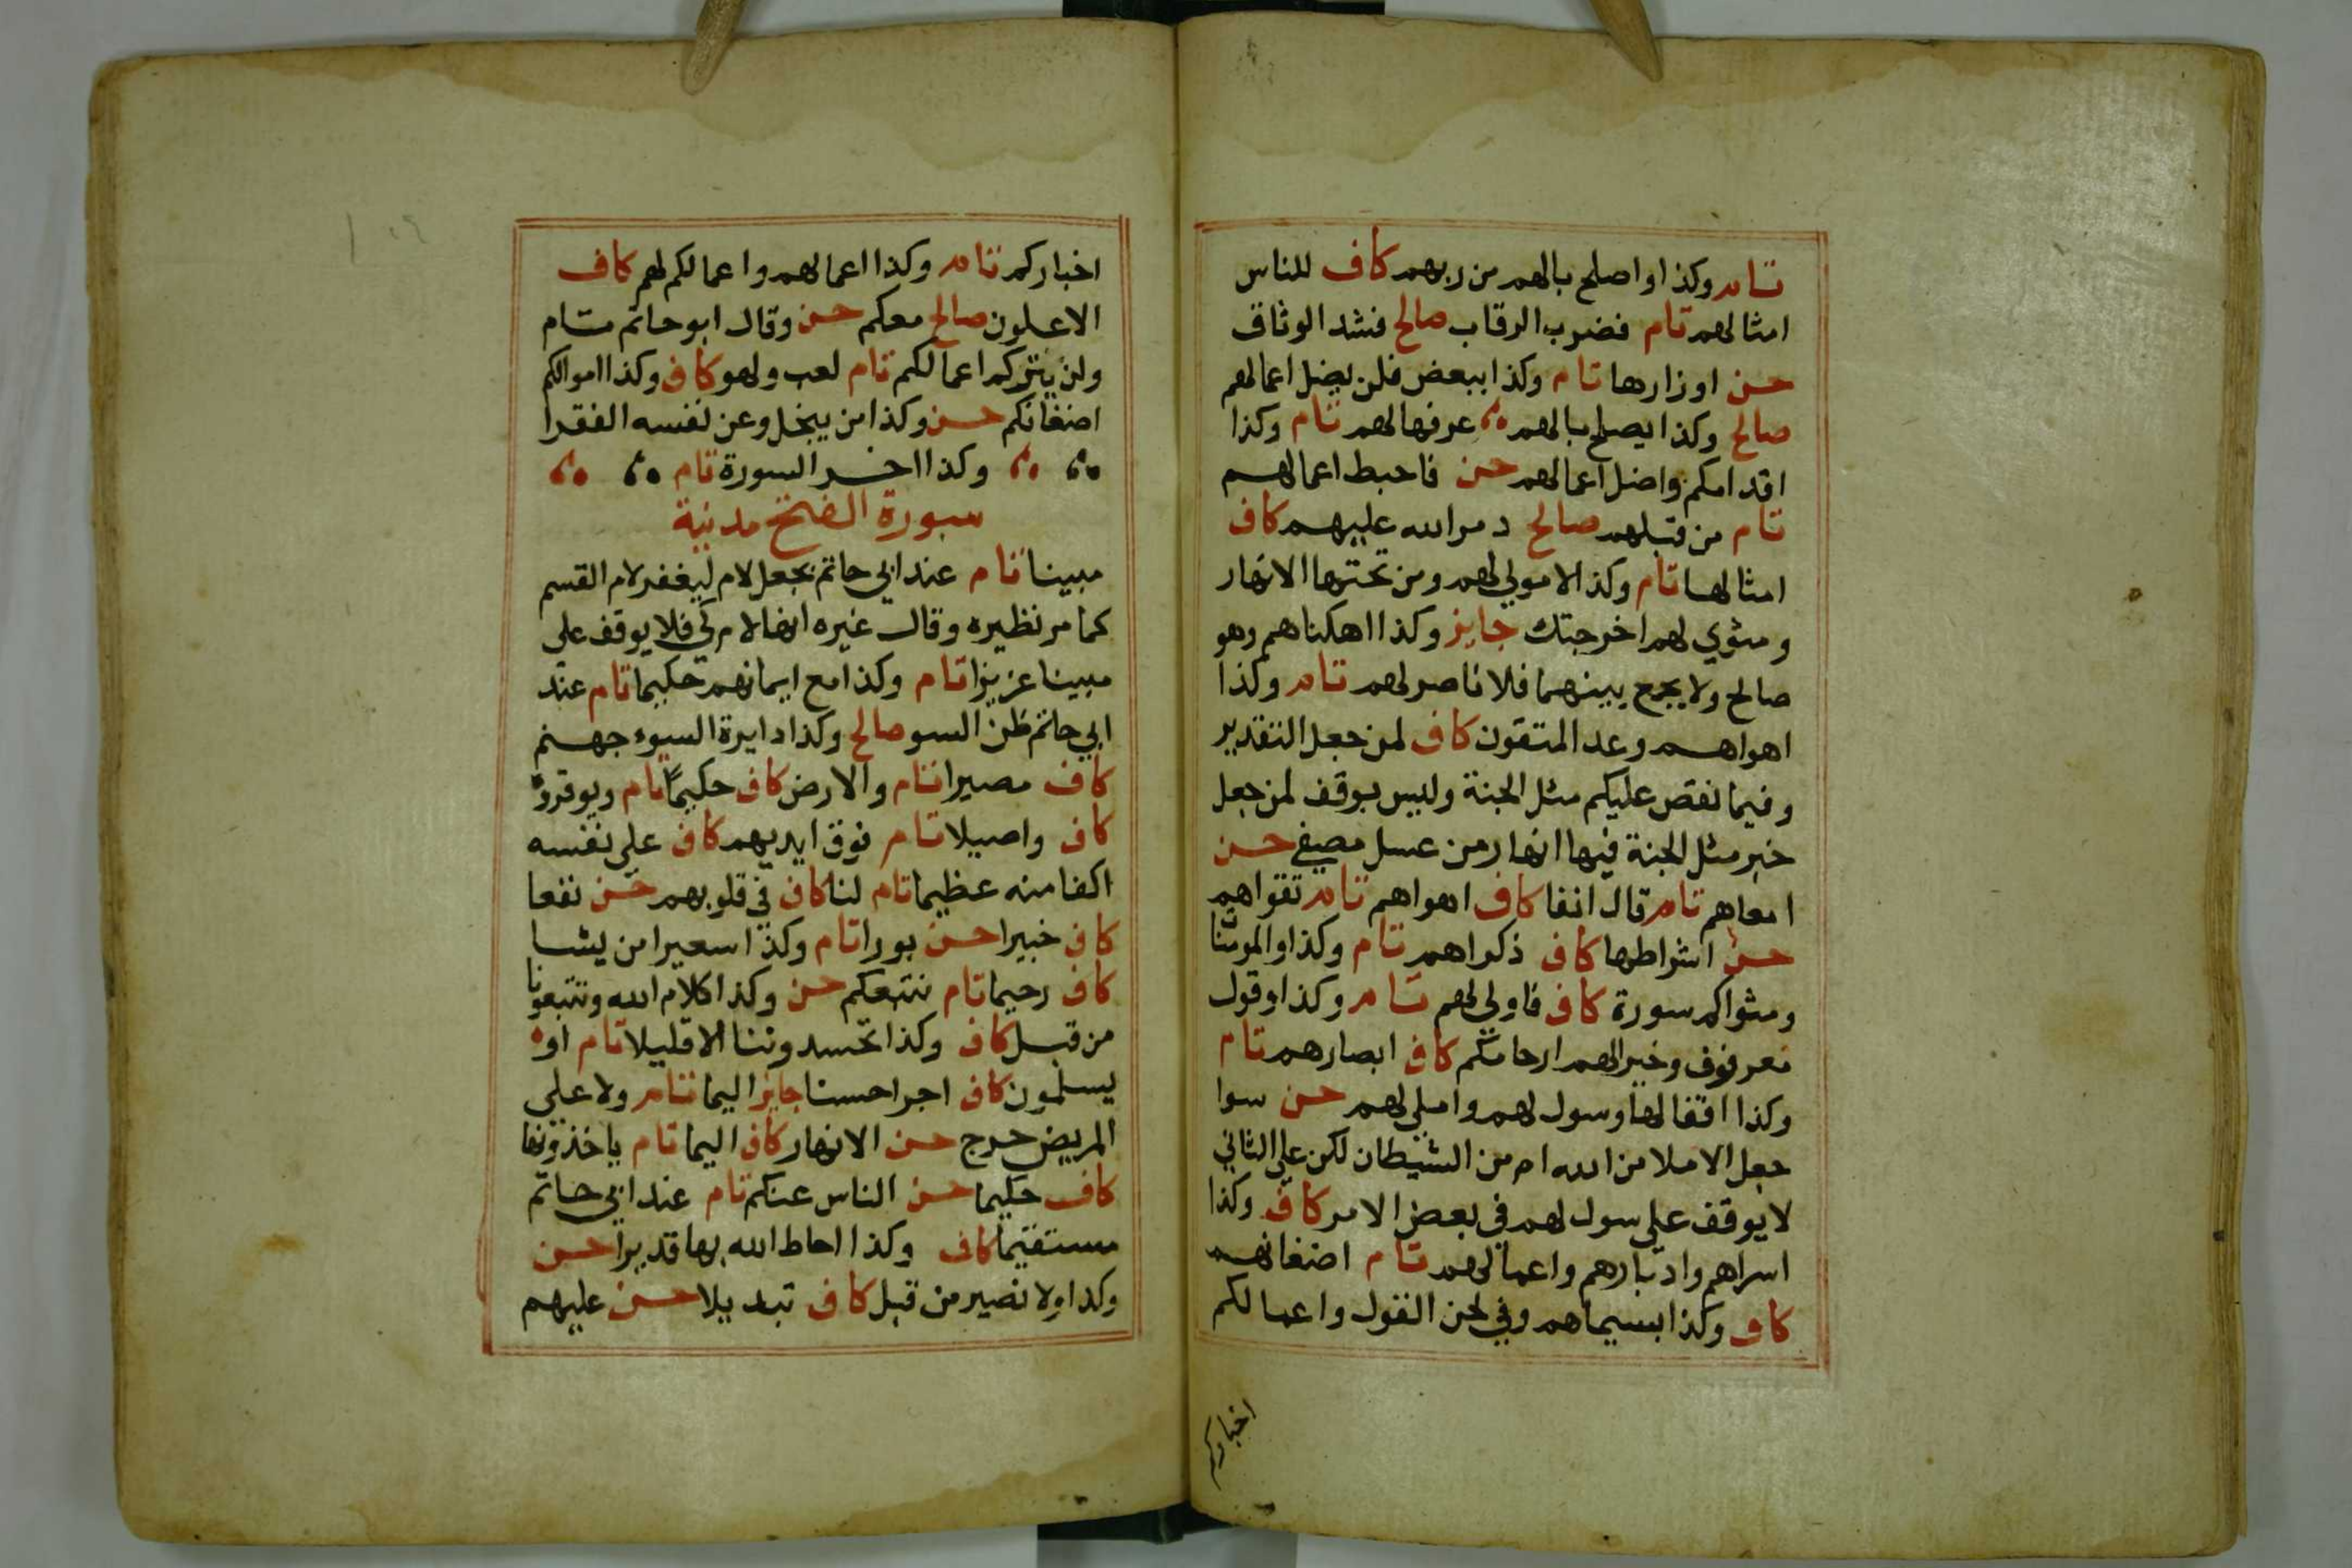 تام وكذا واصلح بالهم من ربهم كاف للناس
امثالهم تام فضرب الرقاب صالح فشد الوثاق
حسن اوزارها تام وكذا ببعض فلن يضل اعمالهم
صالح وكذا يصلح بالهم عرفها لهم تام وكذا
اقدامكم واضل اعمالهم حسن فاحبط اعمالهم
تام من قبلهم صالح دمر الله عليهم كاف
امثالها تام وكذا لا مولي لهم ومن تحتها الانهار
ومثوي لهم اخرجتك جايز وكذا اهلكناهم وهو
صالح ولا يجمع بينهما فلا ناصر لهم تام وكذا
اهواهم وعد المتقون كاف لمن جعل التقدير
وفيما نقص عليكم مثل الجنة وليس بوقف لمن جعل
خبر مثل الجنة فيها انهار من عسل مصفي حسن
امعاهم تام قال انفا كاف اهواهم تام تقواهم
حسن اشراطها كاف ذكراهم تام وكذا والمومنات
ومثواكم سورة كاف فاولي لهم تام وكذا وقول
معروف وخيرا لهم ارحامكم كاف ابصارهم تام
وكذا اقفالها وسول لهم واملي لهم حسن سوا
جعل الاملا من الله ام من الشيطان لكن علي الثاني
لا يوقف علي سول لهم في بعض الامر كاف وكذا
اسرارهم وادبارهم واعمالهم تام اضغانهم
كاف وكذا بسيماهم وفي لحن القول واعمالكم
اخباركم
اخباركم تام وكذا اعمالهم واعمالكم لهم كاف
الاعلون صالح معكم حسن وقال ابو حاتم تام
ولن يتركم اعمالكم تام لعب ولهو كاف وكذا اموالكم
اضغانكم حسن وكذا من يبخل وعن نفسه الفقرا
وكذا اخر السورة تام
سورة الفتح مدنية
مبينا تام عند ابي حاتم بجعل لام ليغفر لام القسم
كما مر نظيره وقال غيره انها لام كي فلا يوقف علي
مبينا عزيزا تام وكذا مع ايمانهم حكيما تام عند
ابي حاتم ظن السو صالح وكذا دايرة السوء جهنم
كاف مصيرا تام والارض كاف حكيما تام ويوقروه
كاف واصيلا تام فوق ايديهم كاف علي نفسه
اكفا منه عظيما تام لنا كاف في قلوبهم حسن نفعا
كاف خبيرا حسن بورا تام وكذا سعيرا من يشا
كاف رحيما تام نتبعكم حسن وكذا كلام الله وتتبعونا
من قبل كاف وكذا تحسدوننا الا قليلا تام او
يسلمون كاف اجرا حسنا جايز اليما تام ولا علي
المريض حرج حسن الانهار كاف اليما تام ياخذونها
كاف حكيما حسن الناس عنكم تام عند ابي حاتم
مستقيما كاف وكذا احاط الله بها قديرا حسن
وكذا ولا نصير من قبل كاف تبديلا حسن عليهم